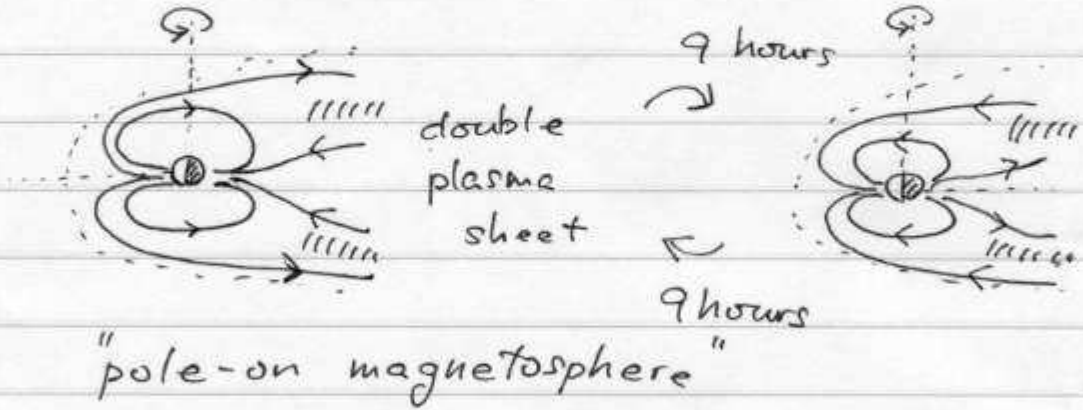 9 hours
double
plasma
sheet
9 hours
"pole-on magnetosphere"